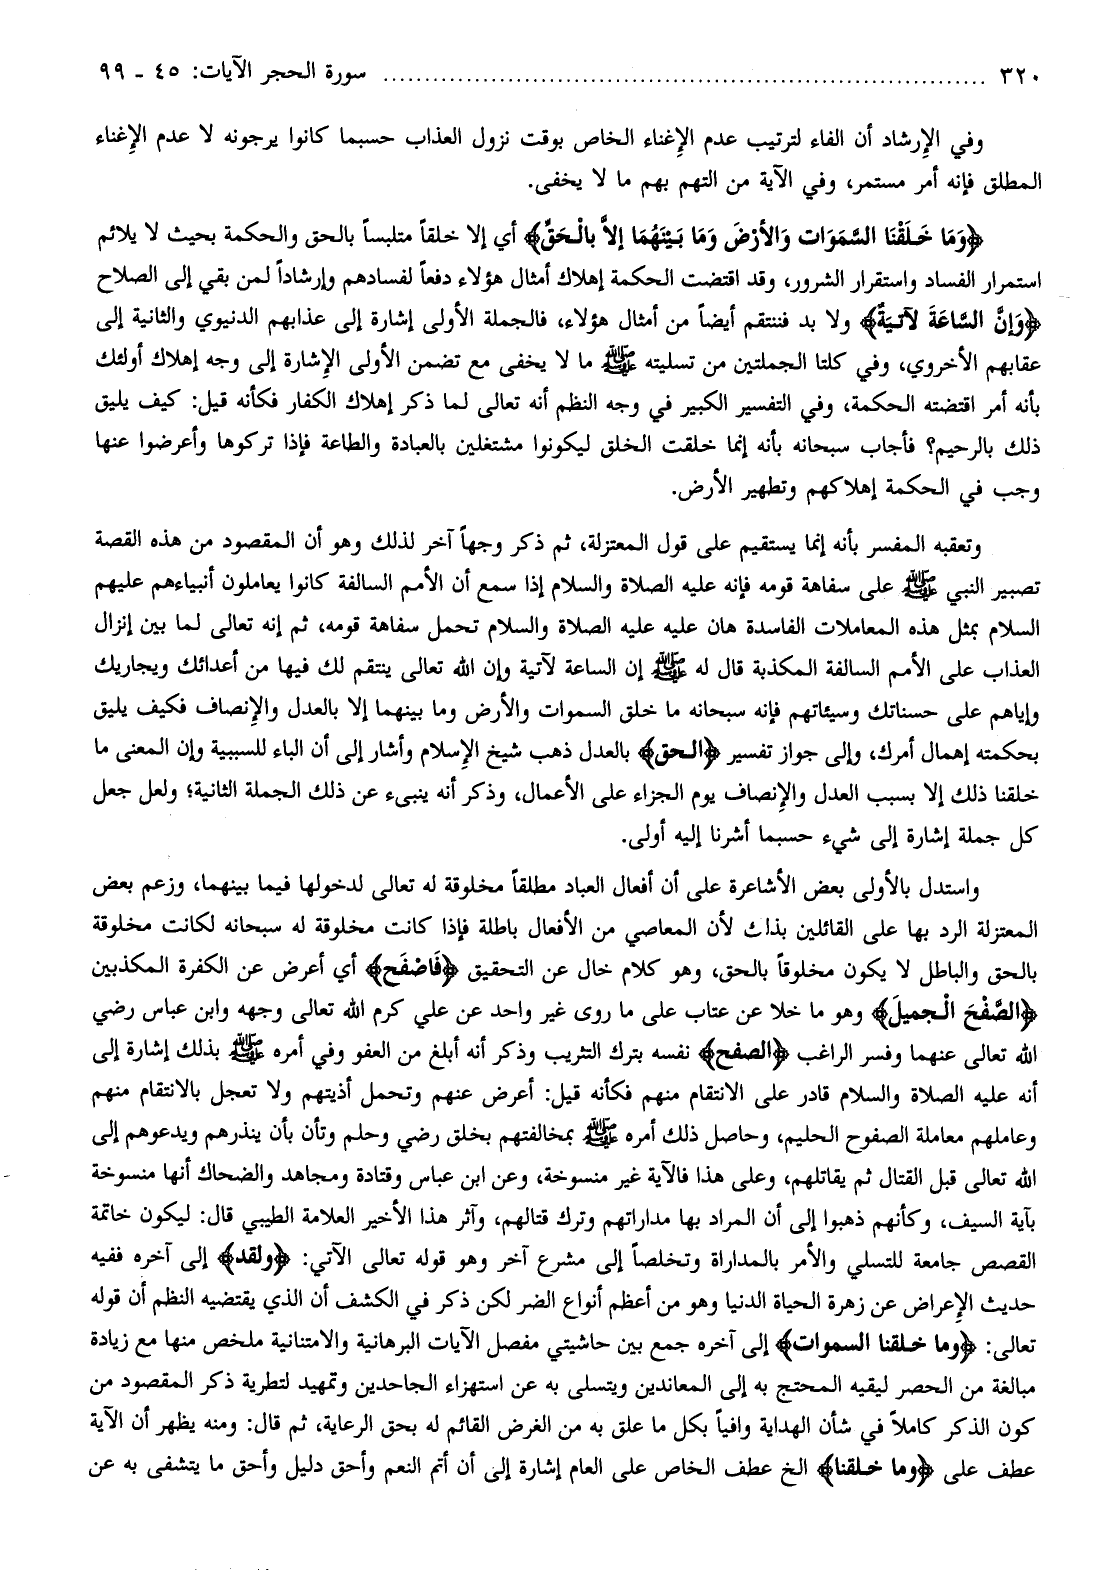 ٣٢٠ ........................................ سورة الحجر الآيات: ٤٥ ـ ٩٩
وفي الإرشاد أن الفاء لترتيب عدم الإغناء الخاص بوقت نزول العذاب حسبما كانوا يرجونه لا عدم الإغناء
المطلق فإنه أمر مستمر، وفي الآية من التهم بهم ما لا يخفى.
﴿وَمَا خَلَقْنَا السَّمَوَات وَالأرْضَ وَمَا بَيْنَهُمَا إلاَّ بالْحَقِّ﴾ أي إلا خلقاً متلبساً بالحق والحكمة بحيث لا يلائم
استمرار الفساد واستقرار الشرور، وقد اقتضت الحكمة إهلاك أمثال هؤلاء دفعاً لفسادهم وإرشاداً لمن بقي إلى الصلاح
﴿وَإنَّ السَّاعَةَ لآتيَةٌ﴾ ولا بد فننتقم أيضاً من أمثال هؤلاء، فالجملة الأولى إشارة إلى عذابهم الدنيوي والثانية إلى
عقابهم الأخروي، وفي كلتا الجملتين من تسليته ﷺ ما لا يخفى مع تضمن الأولى الإشارة إلى وجه إهلاك أولئك
بأنه أمر اقتضته الحكمة، وفي التفسير الكبير في وجه النظم أنه تعالى لما ذكر إهلاك الكفار فكأنه قيل: كيف يليق
ذلك بالرحيم؟ فأجاب سبحانه بأنه إنما خلقت الخلق ليكونوا مشتغلين بالعبادة والطاعة فإذا تركوها وأعرضوا عنها
وجب في الحكمة إهلاكهم وتطهير الأرض.
وتعقبه المفسر بأنه إنما يستقيم على قول المعتزلة، ثم ذكر وجهاً آخر لذلك وهو أن المقصود من هذه القصة
تصبير النبي ﷺ على سفاهة قومه فإنه عليه الصلاة والسلام إذا سمع أن الأمم السالفة كانوا يعاملون أنبياءهم عليهم
السلام بمثل هذه المعاملات الفاسدة هان عليه عليه الصلاة والسلام تحمل سفاهة قومه، ثم إنه تعالى لما بين إنزال
العذاب على الأمم السالفة المكذبة قال له ﷺ إن الساعة لآتية وإن الله تعالى ينتقم لك فيها من أعدائك ويجاريك
وإياهم على حسناتك وسيئاتهم فإنه سبحانه ما خلق السموات والأرض وما بينهما إلا بالعدل والإنصاف فكيف يليق
بحكمته إهمال أمرك، وإلى جواز تفسير ﴿الحق﴾ بالعدل ذهب شيخ الإسلام وأشار إلى أن الباء للسببية وإن المعنى ما
خلقنا ذلك إلا بسبب العدل والإنصاف يوم الجزاء على الأعمال، وذكر أنه ينبىء عن ذلك الجملة الثانية؛ ولعل جعل
كل جملة إشارة إلى شيء حسبما أشرنا إليه أولى.
واستدل بالأولى بعض الأشاعرة على أن أفعال العباد مطلقاً مخلوقة له تعالى لدخولها فيما بينهما، وزعم بعض
المعتزلة الرد بها على القائلين بذلك لأن المعاصي من الأفعال باطلة فإذا كانت مخلوقة له سبحانه لكانت مخلوقة
بالحق والباطل لا يكون مخلوقاً بالحق، وهو كلام خال عن التحقيق ﴿فَاصْفَح﴾ أي أعرض عن الكفرة المكذبين
﴿الصَّفْحَ الْجميلَ﴾ وهو ما خلا عن عتاب على ما روى غير واحد عن علي كرم الله تعالى وجهه وابن عباس رضي
الله تعالى عنهما وفسر الراغب ﴿الصفح﴾ نفسه بترك التثريب وذكر أنه أبلغ من العفو وفي أمره ﷺ بذلك إشارة إلى
أنه عليه الصلاة والسلام قادر على الانتقام منهم فكأنه قيل: أعرض عنهم وتحمل أذيتهم ولا تعجل بالانتقام منهم
وعاملهم معاملة الصفوح الحليم، وحاصل ذلك أمره ﷺ بمخالفتهم بخلق رضي وحلم وتأن بأن ينذرهم ويدعوهم إلى
الله تعالى قبل القتال ثم يقاتلهم، وعلى هذا فالآية غير منسوخة، وعن ابن عباس وقتادة ومجاهد والضحاك أنها منسوخة
بآية السيف، وكأنهم ذهبوا إلى أن المراد بها مداراتهم وترك قتالهم، وآثر هذا الأخير العلامة الطيبي قال: ليكون خاتمة
القصص جامعة للتسلي والأمر بالمداراة وتخلصاً إلى مشرع آخر وهو قوله تعالى الآتي: ﴿ولقد﴾ إلى آخره ففيه
حديث الإعراض عن زهرة الحياة الدنيا وهو من أعظم أنواع الضر لكن ذكر في الكشف أن الذي يقتضيه النظم أن قوله
تعالى: ﴿وما خلقنا السموات﴾ إلى آخره جمع بين حاشيتي مفصل الآيات البرهانية والامتنانية ملخص منها مع زيادة
مبالغة من الحصر ليقيه المحتج به إلى المعاندين ويتسلى به عن استهزاء الجاحدين وتمهيد لتطرية ذكر المقصود من
كون الذكر كاملاً في شأن الهداية وافياً بكل ما علق به من الغرض القائم له بحق الرعاية، ثم قال: ومنه يظهر أن الآية
عطف على ﴿وما خلقنا﴾ الخ عطف الخاص على العام إشارة إلى أن أتم النعم وأحق دليل وأحق ما يتشفى به عن